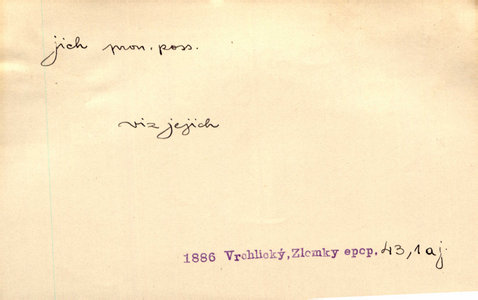 jich pron. poss.
viz jejich
1886 Vrchlický,Zlomky epop. 43,1 aj.